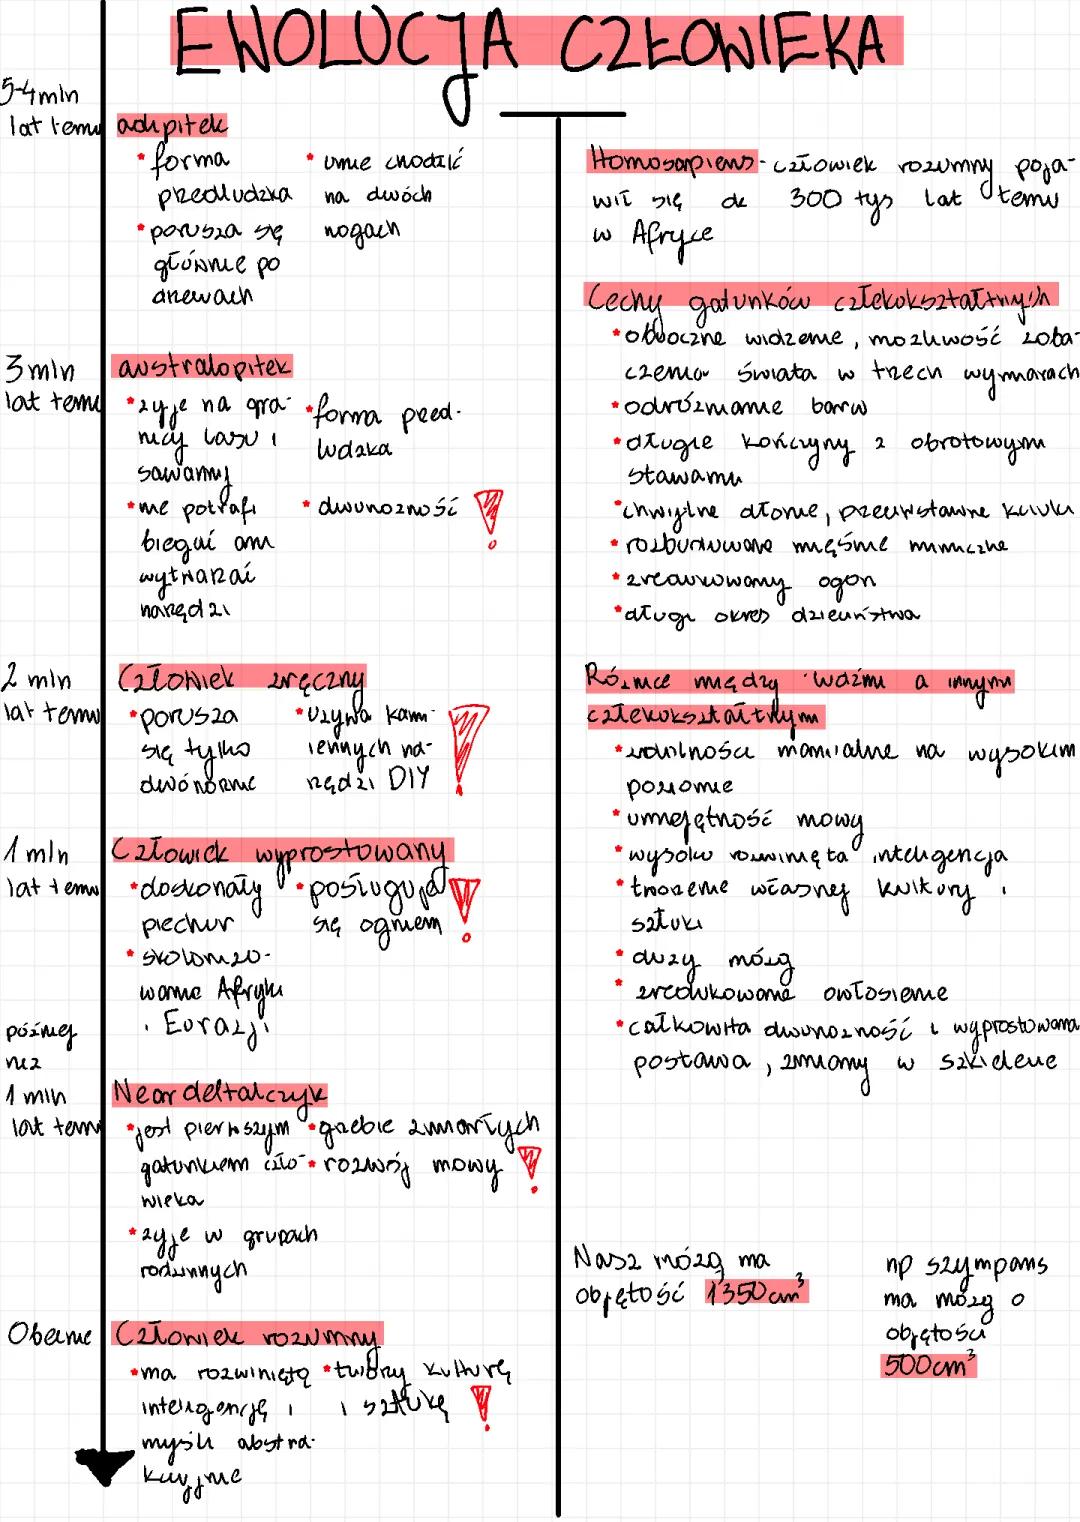 EWOLUCJA CZŁOWIEKA
5-4 mln
lat temu
adipitek
• forma
przedludzka
• porusza się
głównie po
drzewach
• umie chodzić
na dwóch
nogach
3 mln
lat temu
australopitek
• żyje na gra-
nicy lasu i
sawanny
• nie potrafi
biegać ani
wytwarzać
narzędzi
• forma przed-
ludzka
• dwunożność !
2 mln
lat temu
Człowiek zręczny
• porusza
się tylko
dwónożnie
• używa kami-
iennych na-
rzędzi DIY !
1 mln
lat temu
Człowiek wyprostowany
• doskonały
piechur
• skolonizo-
wanie Afryki
i Eurazji
• posługuje
się ogniem !
później
niż
1 mln
lat temu
Neardeltalczyk
• jest pierwszym
gatunkiem czło-
wieka
• żyje w grupach
rodzinnych
• grzebie zmarłych
• rozwój mowy !
Obecnie
Człowiek rozumny
• ma rozwiniętą
inteligencję i
myśli abstra-
kcyjnie
• tworzy kulturę
i sztukę !
Homosapiens - człowiek rozumny poja-
wił się ok 300 tys lat temu
w Afryce
Cechy gatunków człekokształtnych
• obuoczne widzenie, możliwość zoba-
czenia świata w trzech wymiarach
• odróżnianie barw
• długie kończyny z obrotowymi
stawami
• chwytne dłonie, przeciwstawne kciuki
• rozbudowane mięśnie mimiczne
• zredukowany ogon
• długi okres dzieciństwa
Różnice między ludźmi a innymi
człekokształtnymi
• zdolności manialne na wysokim
poziomie
• umiejętność mowy
• wysoko rozwinięta inteligencja
• tworzenie własnej kultury i
sztuki
• duży mózg
• zredukowane owłosienie
• całkowita dwunożność i wyprostowana
postawa, zmiany w szkielecie
Nasz mózg ma
objętość 1350 cm³
np szympans
ma mózg o
objętości
500cm³